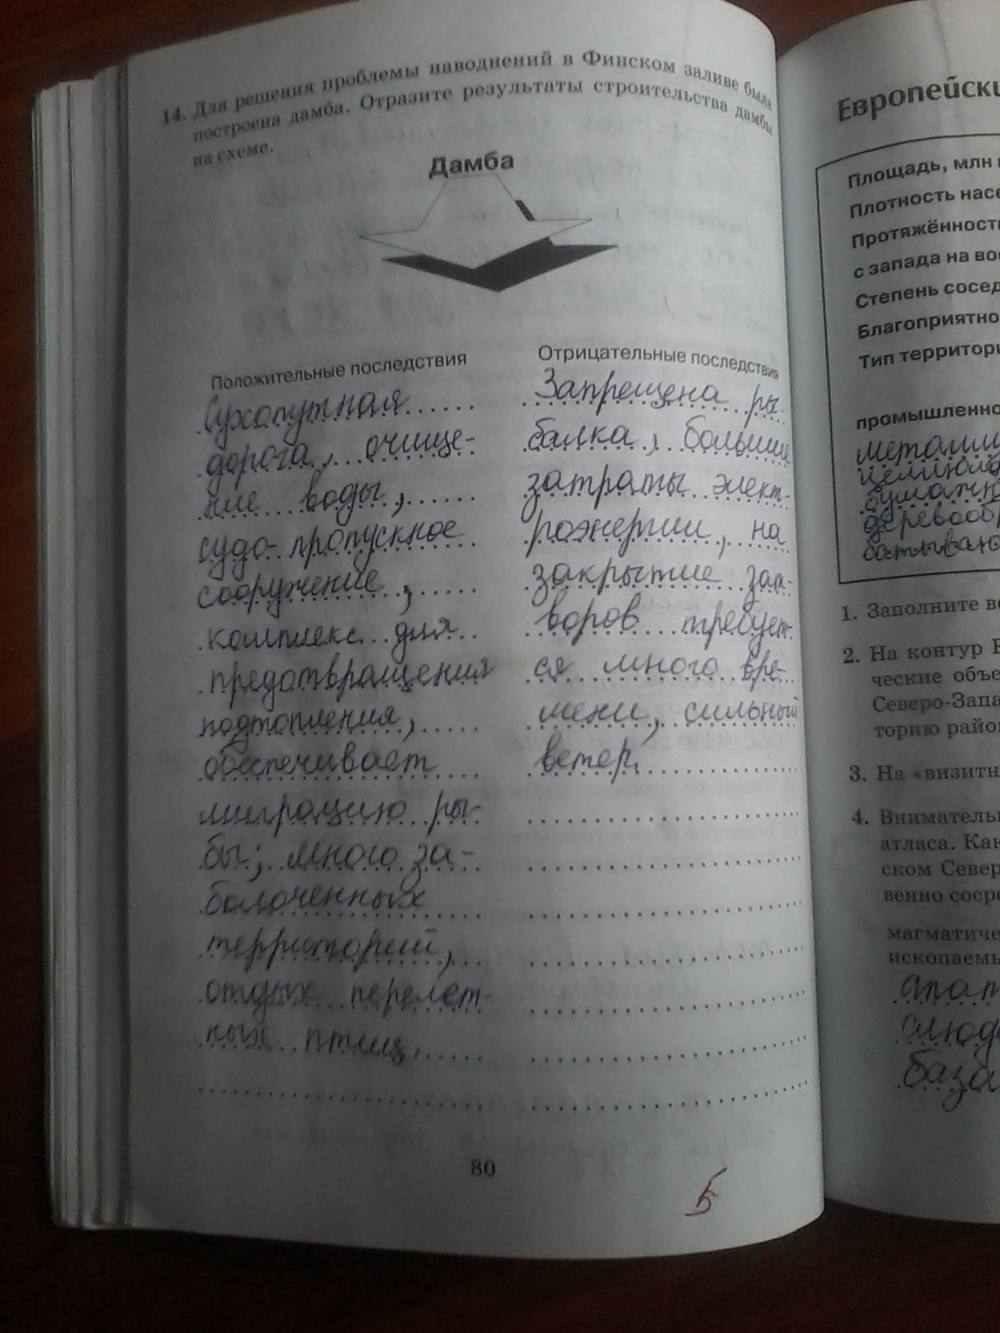 14. Для решения проблемы наводнений в Финском заливе была
построена дамба. Отразите результаты строительства дамбы
на схеме.
Дамба
Положительные последствия
Сухопутная
дорога, очище-
ние воды,
судо-пропускное
сооружение,
комплекс для
предотвращения
подтопления,
обеспечивает
миграцию ры-
бы; много за-
болоченных
территорий,
отдых перелёт-
ных птиц.
Отрицательные последствия
Запрещена ры-
балка, большие
затраты элект-
роэнергии, на
закрытие зат-
воров требует-
ся много вре-
мени, сильный
ветер.
80
5
Европейски
Площадь, млн
Плотность насе
Протяжённость
с запада на во
Степень сосед
Благоприятно
Тип территори
промышленно
металл
целлюло
бумажн
деревооб
батываю
1. Заполните в
2. На контур
ческие объе
Северо-Запа
торию райо
3. На «визитн
4. Вниматель
атласа. Как
ском Север
венно соср
магматиче
ископаемы
апат
слюд
база